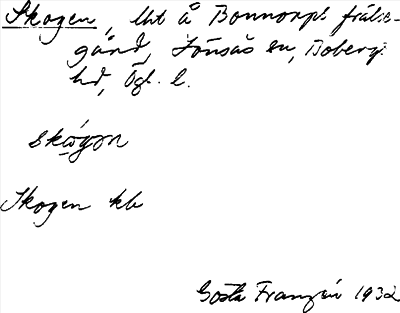 Skogen, lht å Bonnorps frälse-
gård, Lönsås sn, Bobergs
hd, Ögl. l.
skógən
Skogen kb
Gösta Franzén 1932